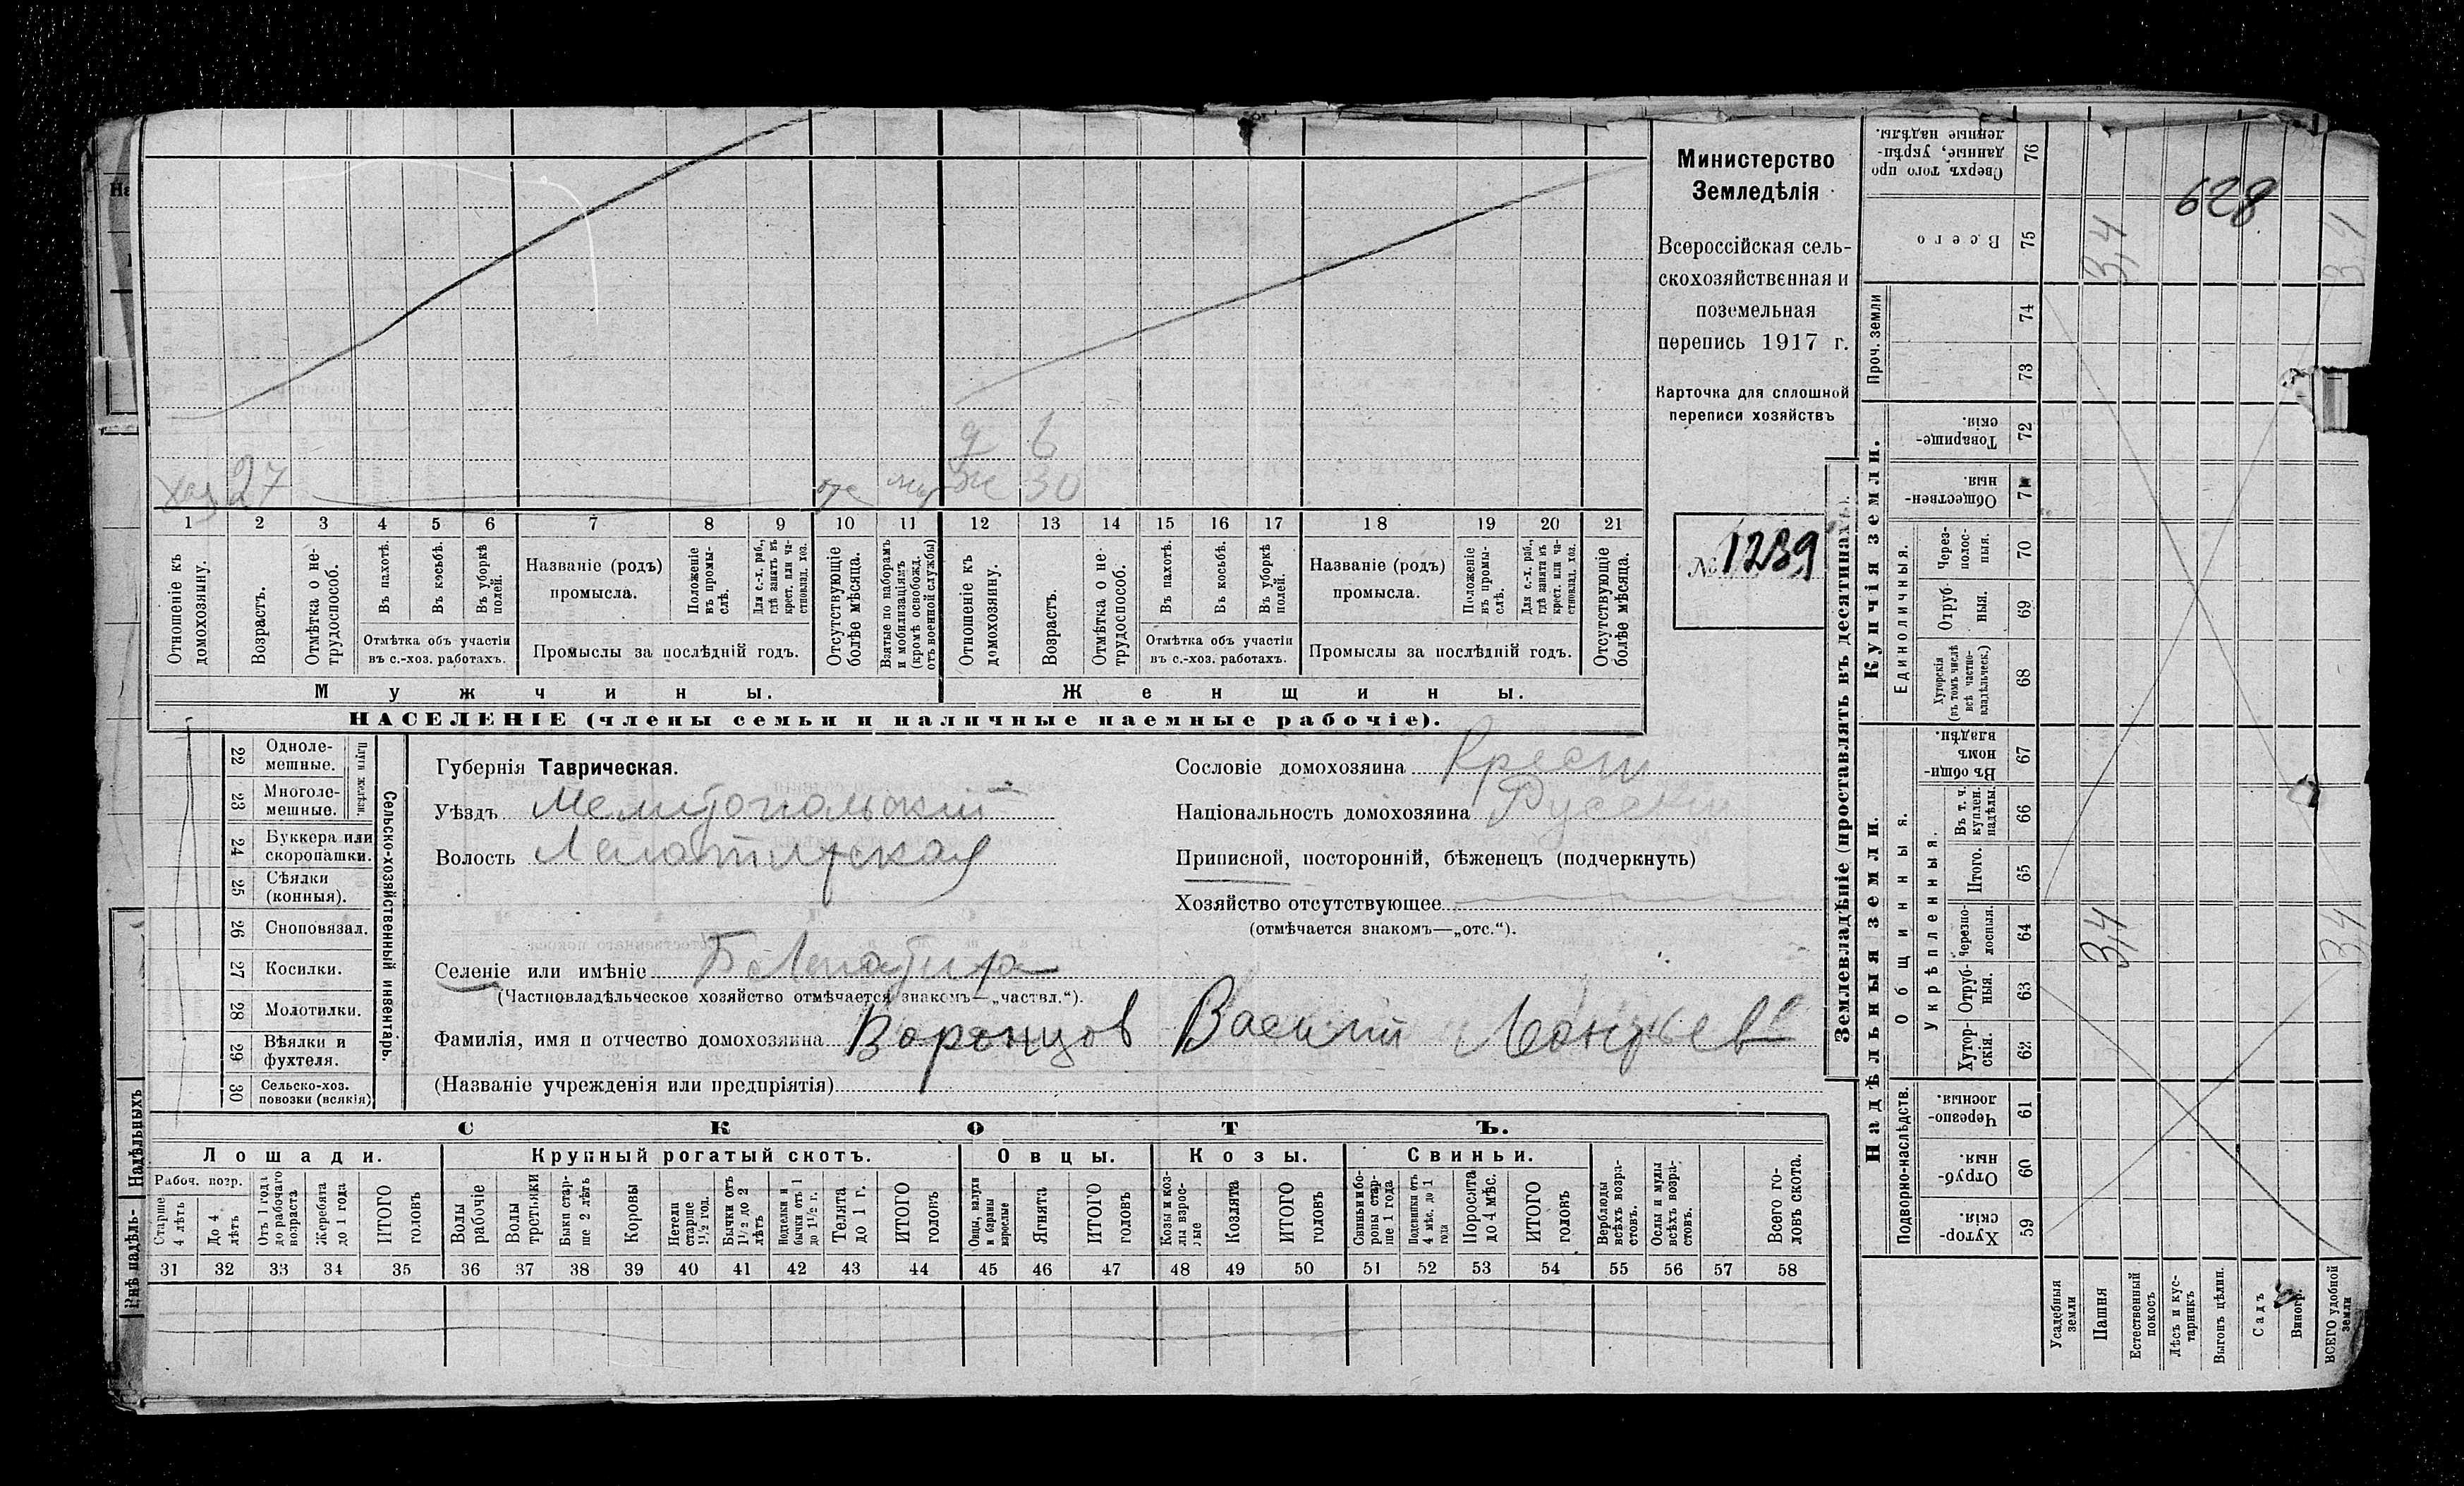 Министерство
Земледѣлія
Всероссійская сель-
скохозяйственная и
поземельная
перепись 1917 г.
Карточка для сплошной
переписи хозяйствъ
№ 1239
628
д 6
хоз 27 отс ж 30
1 2 3 4 5 6 7 8 9 10 11 12 13 14 15 16 17 18 19 20 21
Отношеніе къ домохозяину.
Возрастъ.
Отмѣтка о не-трудоспособ.
Въ пахотѣ.
Въ косьбѣ.
Въ уборкѣ полей.
Отмѣтка объ участіи въ с.-хоз. работахъ.
Названіе (родъ) промысла.
Положеніе въ промы-слѣ.
Для с.-х. раб., гдѣ занятъ въ крест. или ча-стновлад. хоз.
Промыслы за послѣдній годъ.
Отсутствующіе болѣе мѣсяца.
Взятые по наборамъ и мобилизаціямъ (кромѣ освобожд. отъ военной службы)
Отношеніе къ домохозяину.
Возрастъ.
Отмѣтка о не-трудоспособ.
Въ пахотѣ.
Въ косьбѣ.
Въ уборкѣ полей.
Отмѣтка объ участіи въ с.-хоз. работахъ.
Названіе (родъ) промысла.
Положеніе въ промы-слѣ.
Для с.-х. раб., гдѣ занята въ крест. или ча-стновлад. хоз.
Промыслы за послѣдній годъ.
Отсутствующіе болѣе мѣсяца.
Мужчины. Женщины.
НАСЕЛЕНІЕ (члены семьи и наличные наемные рабочіе).
22 Одноле-мешные.
23 Многоле-мешные.
Плуги желѣзн.
24 Буккера или скоропашки.
25 Сѣялки (конныя).
26 Сноповязал.
27 Косилки.
28 Молотилки.
29 Вѣялки и фухтеля.
30 Сельско-хоз. повозки (всякія)
Сельско-хозяйственный инвентарь.
Губернія Таврическая.
Уѣздъ Мелитопольский
Волость Лепатихская
Селеніе или имѣніе Б Лепатиха
(Частновладѣльческое хозяйство отмѣчается знакомъ—„частвл.“).
Фамилія, имя и отчество домохозяина Воронцов Василий
(Названіе учрежденія или предпріятія)
Сословіе домохозяина Крест
Національность домохозяина Русский
Приписной, посторонній, бѣженецъ (подчеркнуть)
Хозяйство отсутствующее
(отмѣчается знакомъ—„отс.“).
СКОТЪ.
Лошади. Крупный рогатый скотъ. Овцы. Козы. Свиньи.
Рабоч. возр.
Старше 4 лѣтъ
До 4 лѣтъ
Отъ 1 года до рабочаго возраста
Жеребята до 1 года
ИТОГО головъ
Волы рабочіе
Волы третьяки
Быки стар-ше 2 лѣтъ
Коровы
Нетели старше 1½ год.
Бычки отъ 1½ до 2 лѣтъ
Телки и бычки отъ 1 до 1½ г.
Телята до 1 г.
ИТОГО головъ
Овцы, валухи и бараны взрослые
Ягнята
ИТОГО головъ
Козы и коз-лы взрос-лые
Козлята
ИТОГО головъ
Свиньи и бо-ровы стар-ше 1 года
Подсвинки отъ 4 мѣс. до 1 года
Поросята до 4 мѣс.
ИТОГО головъ
Верблюды всѣхъ возра-стовъ.
Ослы и мулы всѣхъ возра-стовъ.
Всего го-ловъ скота.
31 32 33 34 35 36 37 38 39 40 41 42 43 44 45 46 47 48 49 50 51 52 53 54 55 56 57 58
Землевладѣніе (проставлять въ десятинахъ).
Надѣльныя земли. Купчія земли. Проч. земли
Подворно-наслѣдств.
Общинныя.
Укрѣпленныя.
Единоличныя.
Хутор-скія. 59
Отруб-ныя. 60
Черезпо-лосныя. 61
Хутор-скія. 62
Отруб-ныя. 63
Черезпо-лосныя. 64
Итого. 65
Въ т. ч. куплен. надѣлы. 66
Въ общи-номъ владѣн. 67
Хуторскія (въ томъ числѣ всѣ частно-владѣльческ.) 68
Отруб-ныя. 69
Через-полос-ныя. 70
Обществен-ныя. 71
Товарище-скія. 72
73
74
Всего 75
Сверхъ того про-данные, укрѣп-ленные надѣлы. 76
Усадебныя земли
Пашня
Естественный покосъ
Лѣсъ и кус-тарникъ
Выгонъ цѣлин.
Садъ
Виногр.
ВСЕГО удобной земли
3,4 3,4
3,4 3,4
Надѣльныхъ
Внѣ надѣль-